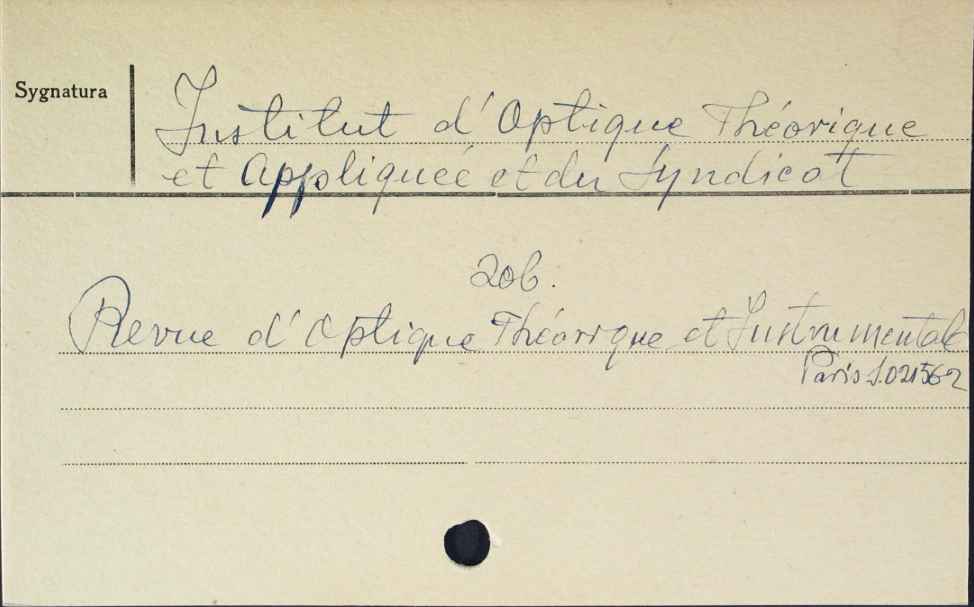 Sygnatura
Institut d'Optique Théorique
et Appliquée et du Syndicat
Zob.
Revue d'Optique Théorique et Instrumentale
Paris S.021562